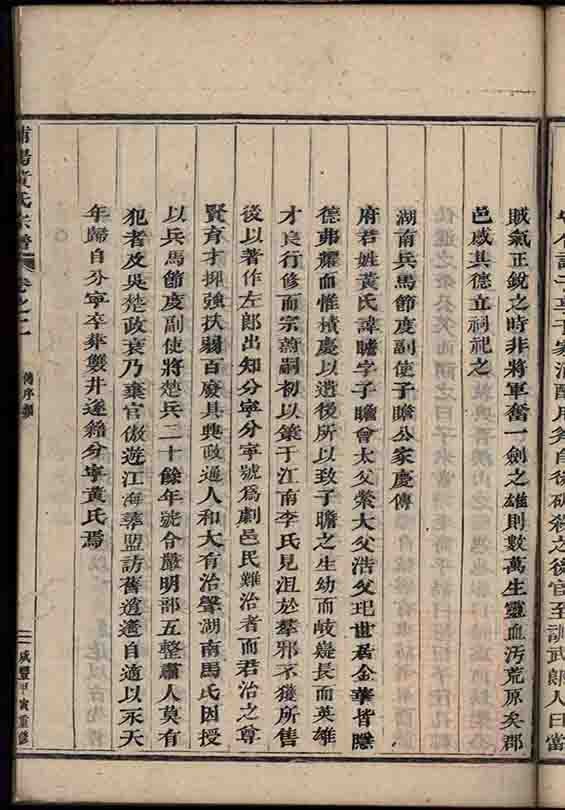 賊氣正銳之時非將軍奮一劍之雄則數萬生靈血污荒原矣郡
邑感其德立祠祀之
湖南兵馬節度副使子瞻公家慶傳
府君姓黃氏諱瞻字子瞻曾大父縈大父浩父玘世居金華皆隱
德弗耀而惟積慶以遺後所以致子瞻之生幼而岐嶷長而英雄
才良行修而宗尚嗣初以策于江南李氏見沮於羣邪不獲所售
後以著作左郎出知分寧分寧號為劇邑民難治者而君治之尊
賢育才抑強扶弱百廢具興政通人和大有治聲湖南馬氏因授
以兵馬節度副使將楚兵二十餘年號令嚴明部五整肅人莫有
犯者及吳楚政衰乃棄官倣遊江海葬盟訪舊逍遙自適以示天
年歸自分寧卒葬雙井遂籍分寧黃氏焉
浦陽黃氏宗譜
卷之二
傳序類
二
咸豐甲寅重修
之後官至訓武郎人曰當